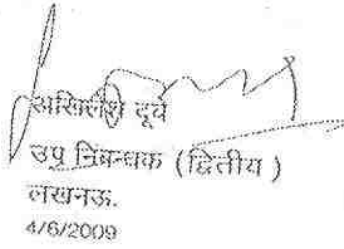 अखिलेश दूबे
उप निबन्धक (द्वितीय)
लखनऊ.
4/6/2009